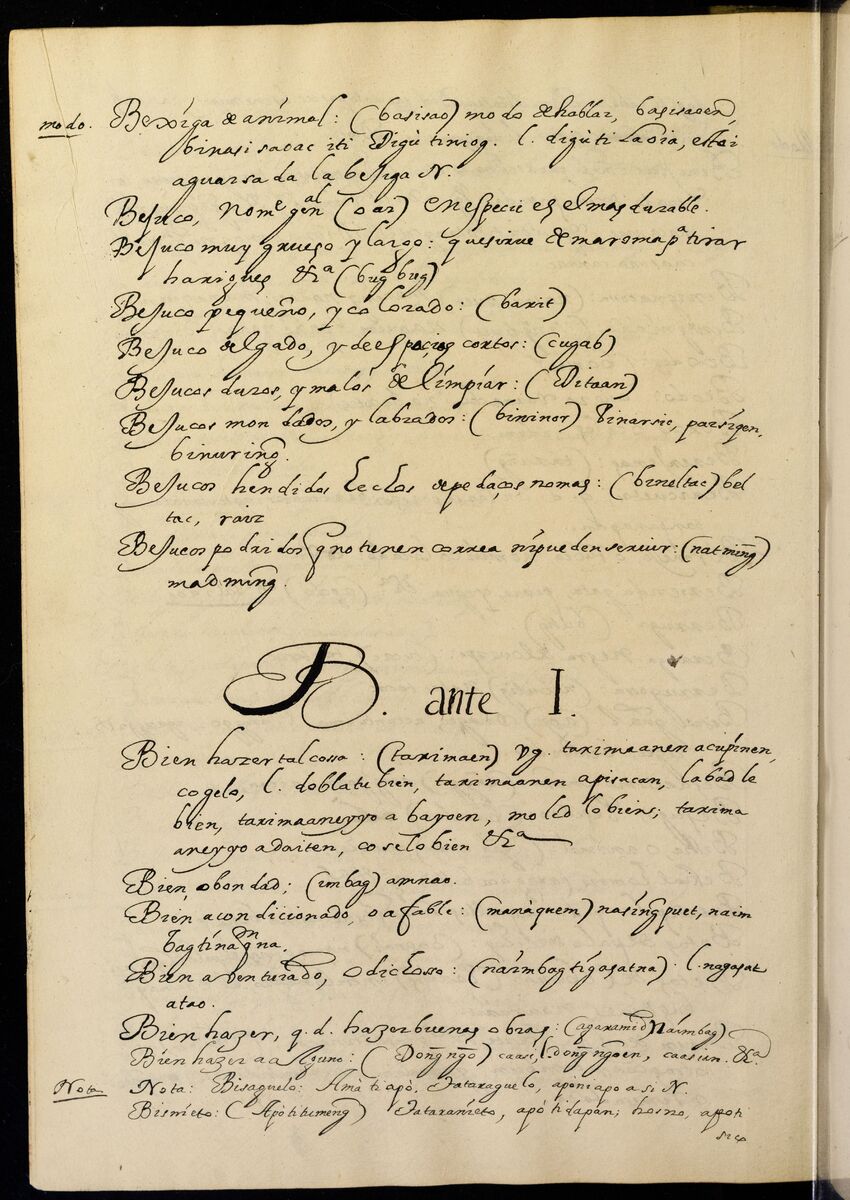 modo. Bexiga de animal: (basisao) modo de hablar, basisaoen,
binasisaoac iti Digu tiniog. l. digù ti Laoia, estoi
aguarsada la besiga N.
Besuco, nom.e gen.al (oar) en especie es el mas durable.
Besuco muy grueso y largo: que sirue de maroma p.a tirar
harigues &.a (bug bug)
Besuco pequeño, y colorado: (barit)
Besuco delgado, y de espacios cortos: (cugab)
Besucos duros, y malos de limpiar: (Ditaan)
Besucos mondados, y labrados: (bininor) binarsic, parsigen,
binuring.
Besucos hendidos hechos de pedaços nomas: (bineltac) bel
tac, raiz
Besucos podridos q no tienen correa ni pueden seruir: (natming)
madming.
B. ante I.
Bien hazer tal cossa: (tarimaen) vg. tarimaanen acupinen,
cogelo, l. dobla tu bien, tarimaanen apisacan, labadle
bien, tarimaaneyyo a bayoen, moled lo bien; tarima
aneyyo adaiten, coselo bien &.a
Bien, o bondad; (imbag) amnao.
Bien acondicionado, o afable: (manàquem) nasingpuet, naim
bag tina
Bien aventurado, o dichosso: (naimbag tigasatna) l. nagasat
atao.
Bien hazer, q. d. hazer buenas obras: (agaramid naimbag)
Bien hazer a alguno: (Dongngo) caasi, l. dongngoen, caasiun. &.a
Nota Nota: Bisaguelo: Amà ti apò, Tataraguelo, apò ni apo a si N.
Bisnieto: (Apò ti tumeng) Tataranieto, apò ti dapàn; hosno, apo ti
sico